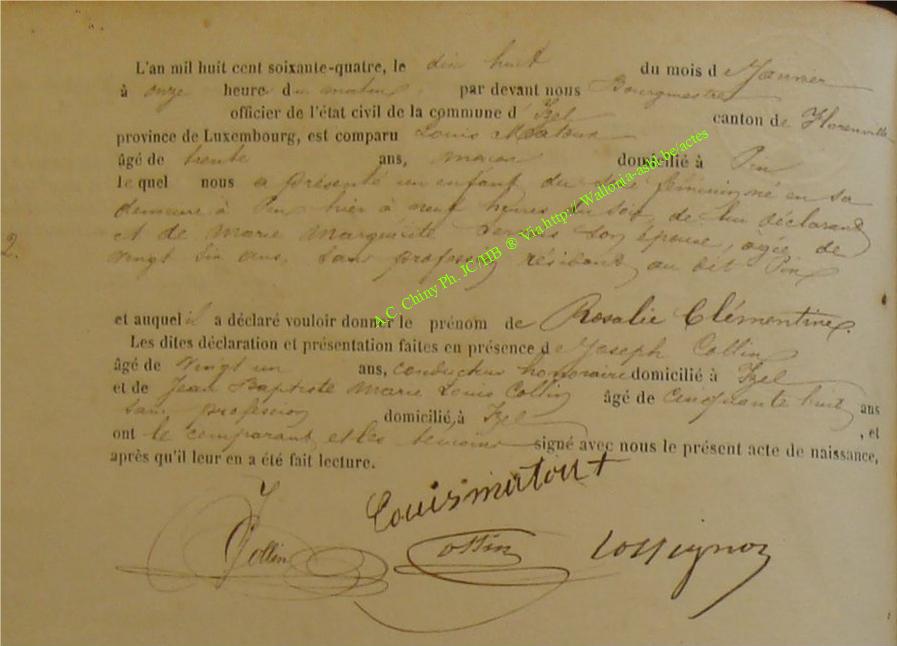 L'an mil huit cent soixante-quatre, le dix huit du mois de Janvier
à onze heure du matin, par devant nous Bourgmestre
officier de l'état civil de la commune d'Izel canton de Florenville
province de Luxembourg, est comparu Louis
âgé de trente ans, maçon domicilié à Pin
lequel nous a présenté un enfant du sexe féminin, né en sa
demeure à Pin hier à neuf heures du soir, de lui déclarant
et de Marie Marguerite son épouse, agée de
vingt six ans, sans profession, résidant au dit Pin
2.
et auquel il a déclaré vouloir donner le prénom de Rosalie Clémentine.
Les dites déclaration et présentation faites en présence de Joseph Collin
âgé de vingt un ans, conducteur honoraire domicilié à Izel
et de Jean Baptiste Marie Louis Collin âgé de cinquante huit ans
sans profession domicilié à Izel, et
ont le comparant et les témoins signé avec nous le présent acte de naissance,
après qu'il leur en a été fait lecture.
J Collin Louis Collin
A.C. Chiny Ph. JC/HB ® Via http://Wallonia-asbl.be/actes